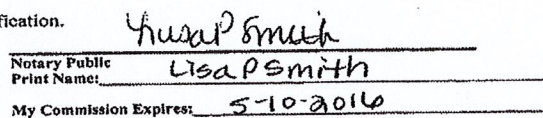 fication.
Lisa P Smith
Notary Public
Print Name: Lisa P Smith
My Commission Expires: 5-10-2016